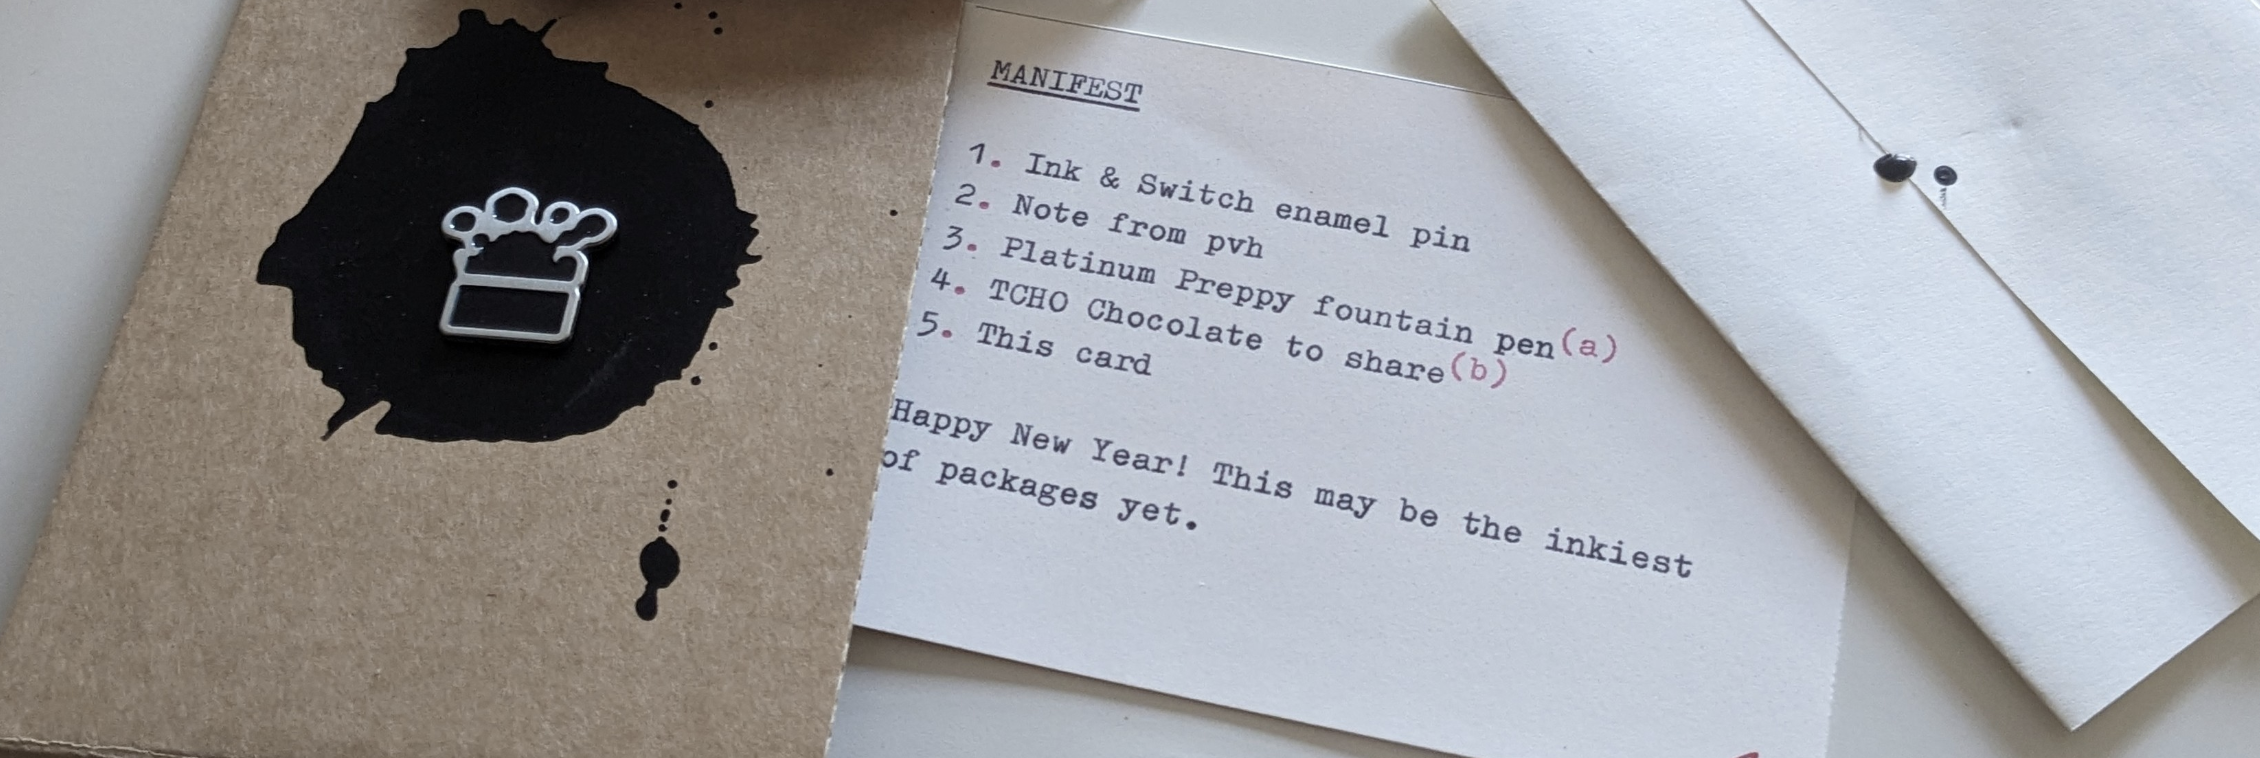 MANIFEST
1. Ink & Switch enamel pin
2. Note from pvh
3. Platinum Preppy fountain pen(a)
4. TCHO Chocolate to share(b)
5. This card
Happy New Year! This may be the inkiest
of packages yet.